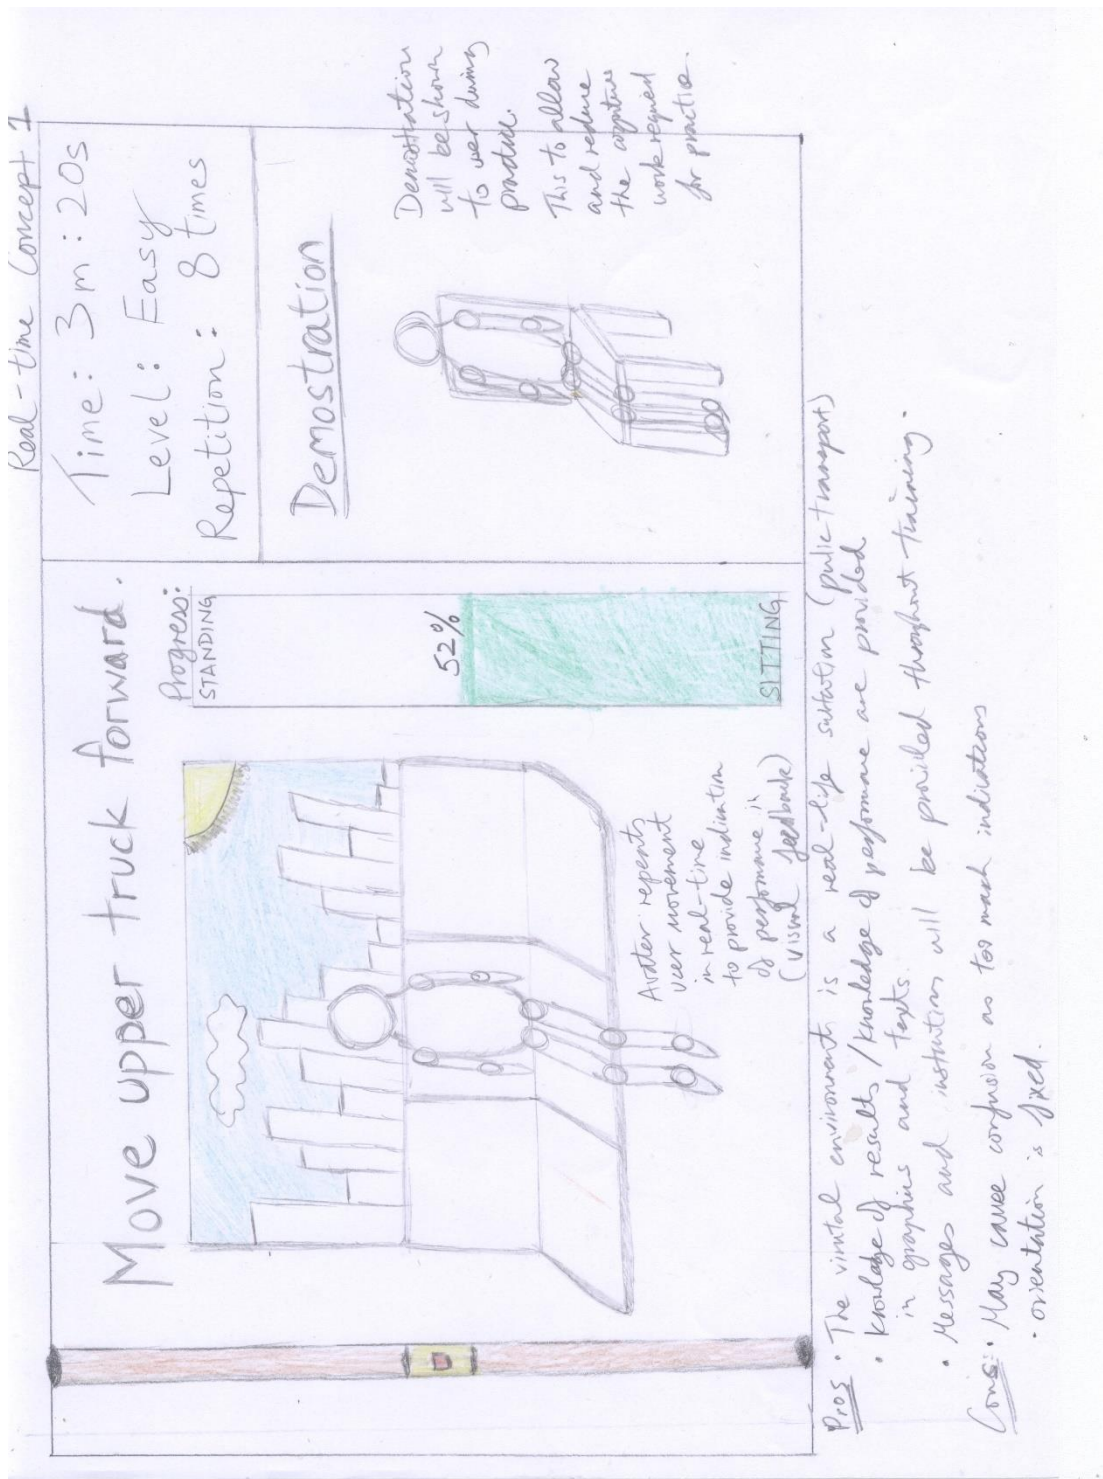 Real-time Concept 1
Move upper truck forward.
Progress:
STANDING
52%
SITTING
Time: 3m:20s
Level: Easy
Repetition: 8 times
Demostration
Demostration
will be shown
to user during
practice.
This to allow
and reduce
the cognitive
work required
for practise.
Avater repeats
user movement
in real-time
to provide indication
of performane is
(visual feedback)
Pros • The virutal environment is a real-life sutation (pulic transport)
• Knowledge of results / Knowledge of performane are provided
in graphics and texts.
• Messages and instrutions will be provided throughout training.
Cons: • May cause confusion as too mach inditations
• orientation is fixed.